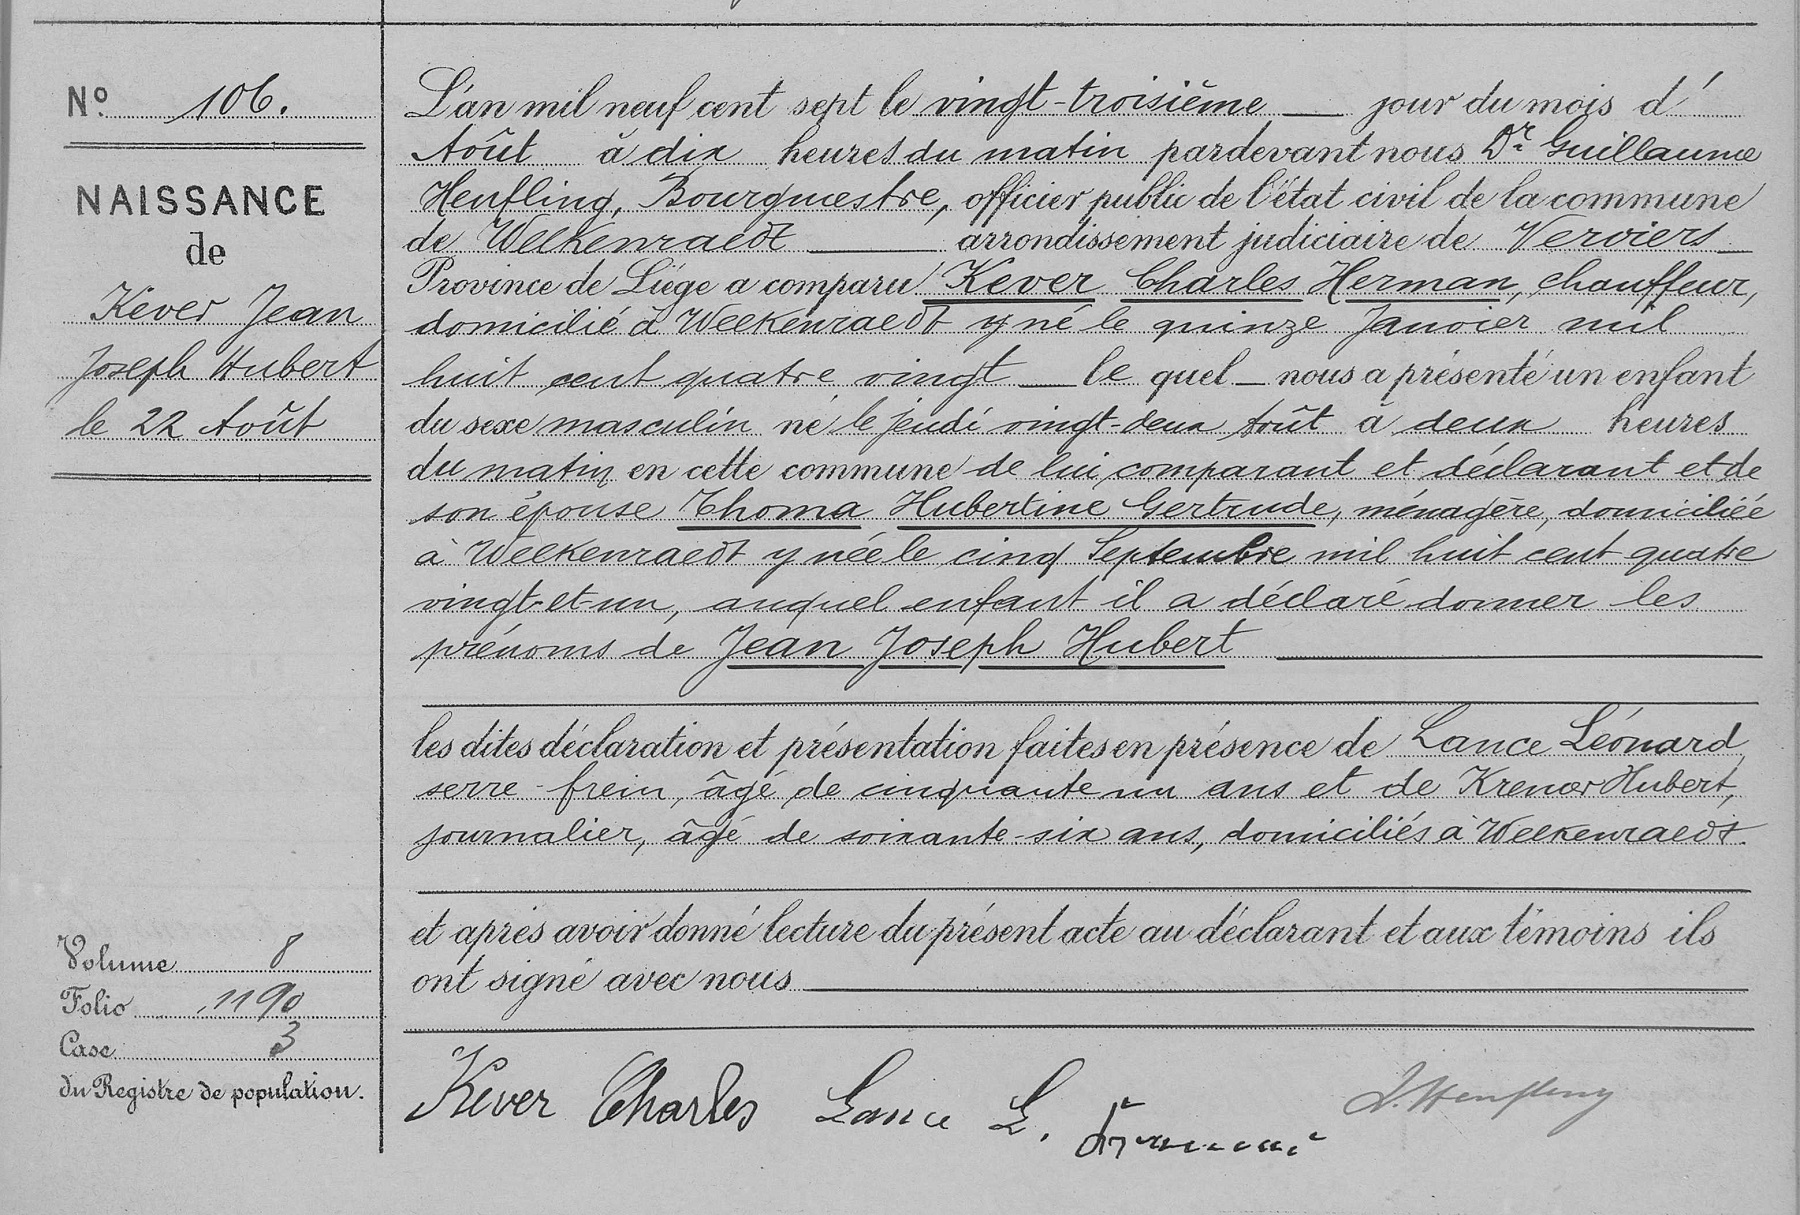 N° 106.
NAISSANCE
de
Kever Jean
Joseph Hubert
le 22 Août
Volume 8
Folio 1190
Case 3
du Registre de population.
L'an mil neuf cent sept le vingt-troisième jour du mois d'
Août à dix heures du matin pardevant nous Dr Guillaume
Henfling, Bourgmestre, officier public de l'état civil de la commune
de Welkenraedt arrondissement judiciaire de Verviers
Province de Liége a comparu Kever Charles Herman, chauffeur,
domicilié à Welkenraedt y né le quinze Janvier mil
huit cent quatre vingt le quel nous a présenté un enfant
du sexe masculin né le jeudi vingt-deux Août à deux heures
du matin en cette commune de lui comparant et déclarant et de
son épouse Thoma Hubertine Gertrude, ménagère, domiciliée
à Welkenraedt y née le cinq Septembre mil huit cent quatre
vingt-et-un, auquel enfant il a déclaré donner les
prénoms de Jean Joseph Hubert
les dites déclaration et présentation faites en présence de Lance Léonard,
serre-frein, âgé de cinquante un ans et de Krener Hubert,
journalier, âgé de soixante-six ans, domiciliés à Welkenraedt.
et après avoir donné lecture du présent acte au déclarant et aux témoins ils
ont signé avec nous
Kever Charles Lance L.